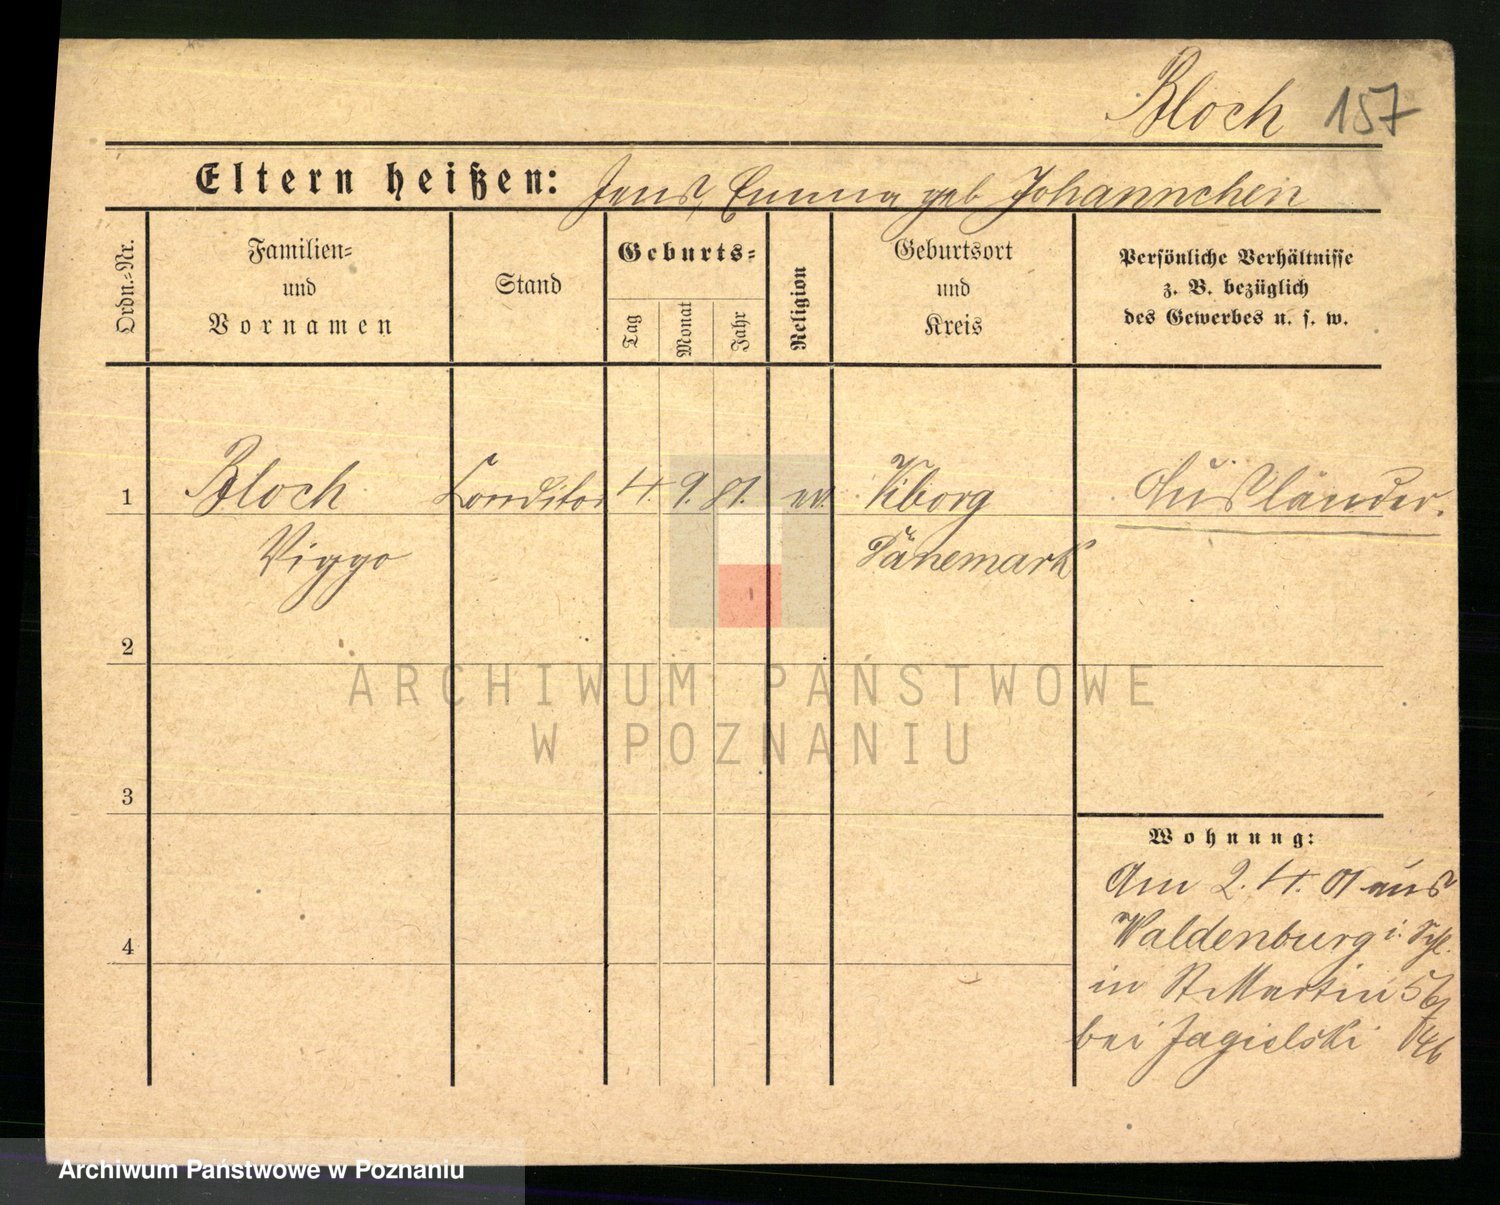 Bloch 157
Eltern heißen: Jens, Emma geb Johannchen
Ordn.-Nr.
Familien-
und
Vornamen
Stand
Geburts-
Tag
Monat
Jahr
Religion
Geburtsort
und
Kreis
Persönliche Verhältnisse
z. B. bezüglich
des Gewerbes u. s. w.
1 Bloch Conditor 4. 9. 81. ev. Viborg Ausländer.
Viggo Dänemark
2
ARCHIWUM PAŃSTWOWE
W POZNANIU
3
Wohnung:
4
Am 2. 4. 01 aus
Waldenburg i. Schl.
in St Martin 56/
bei Jagielski
Archiwum Państwowe w Poznaniu